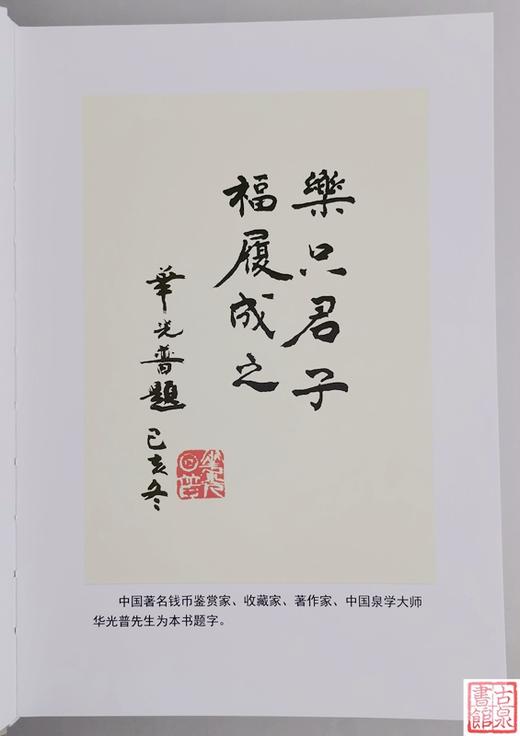 樂只君子
福履成之
華光普題
己亥冬
中国著名钱币鉴赏家、收藏家、著作家、中国泉学大师
华光普先生为本书题字。
古泉
書館